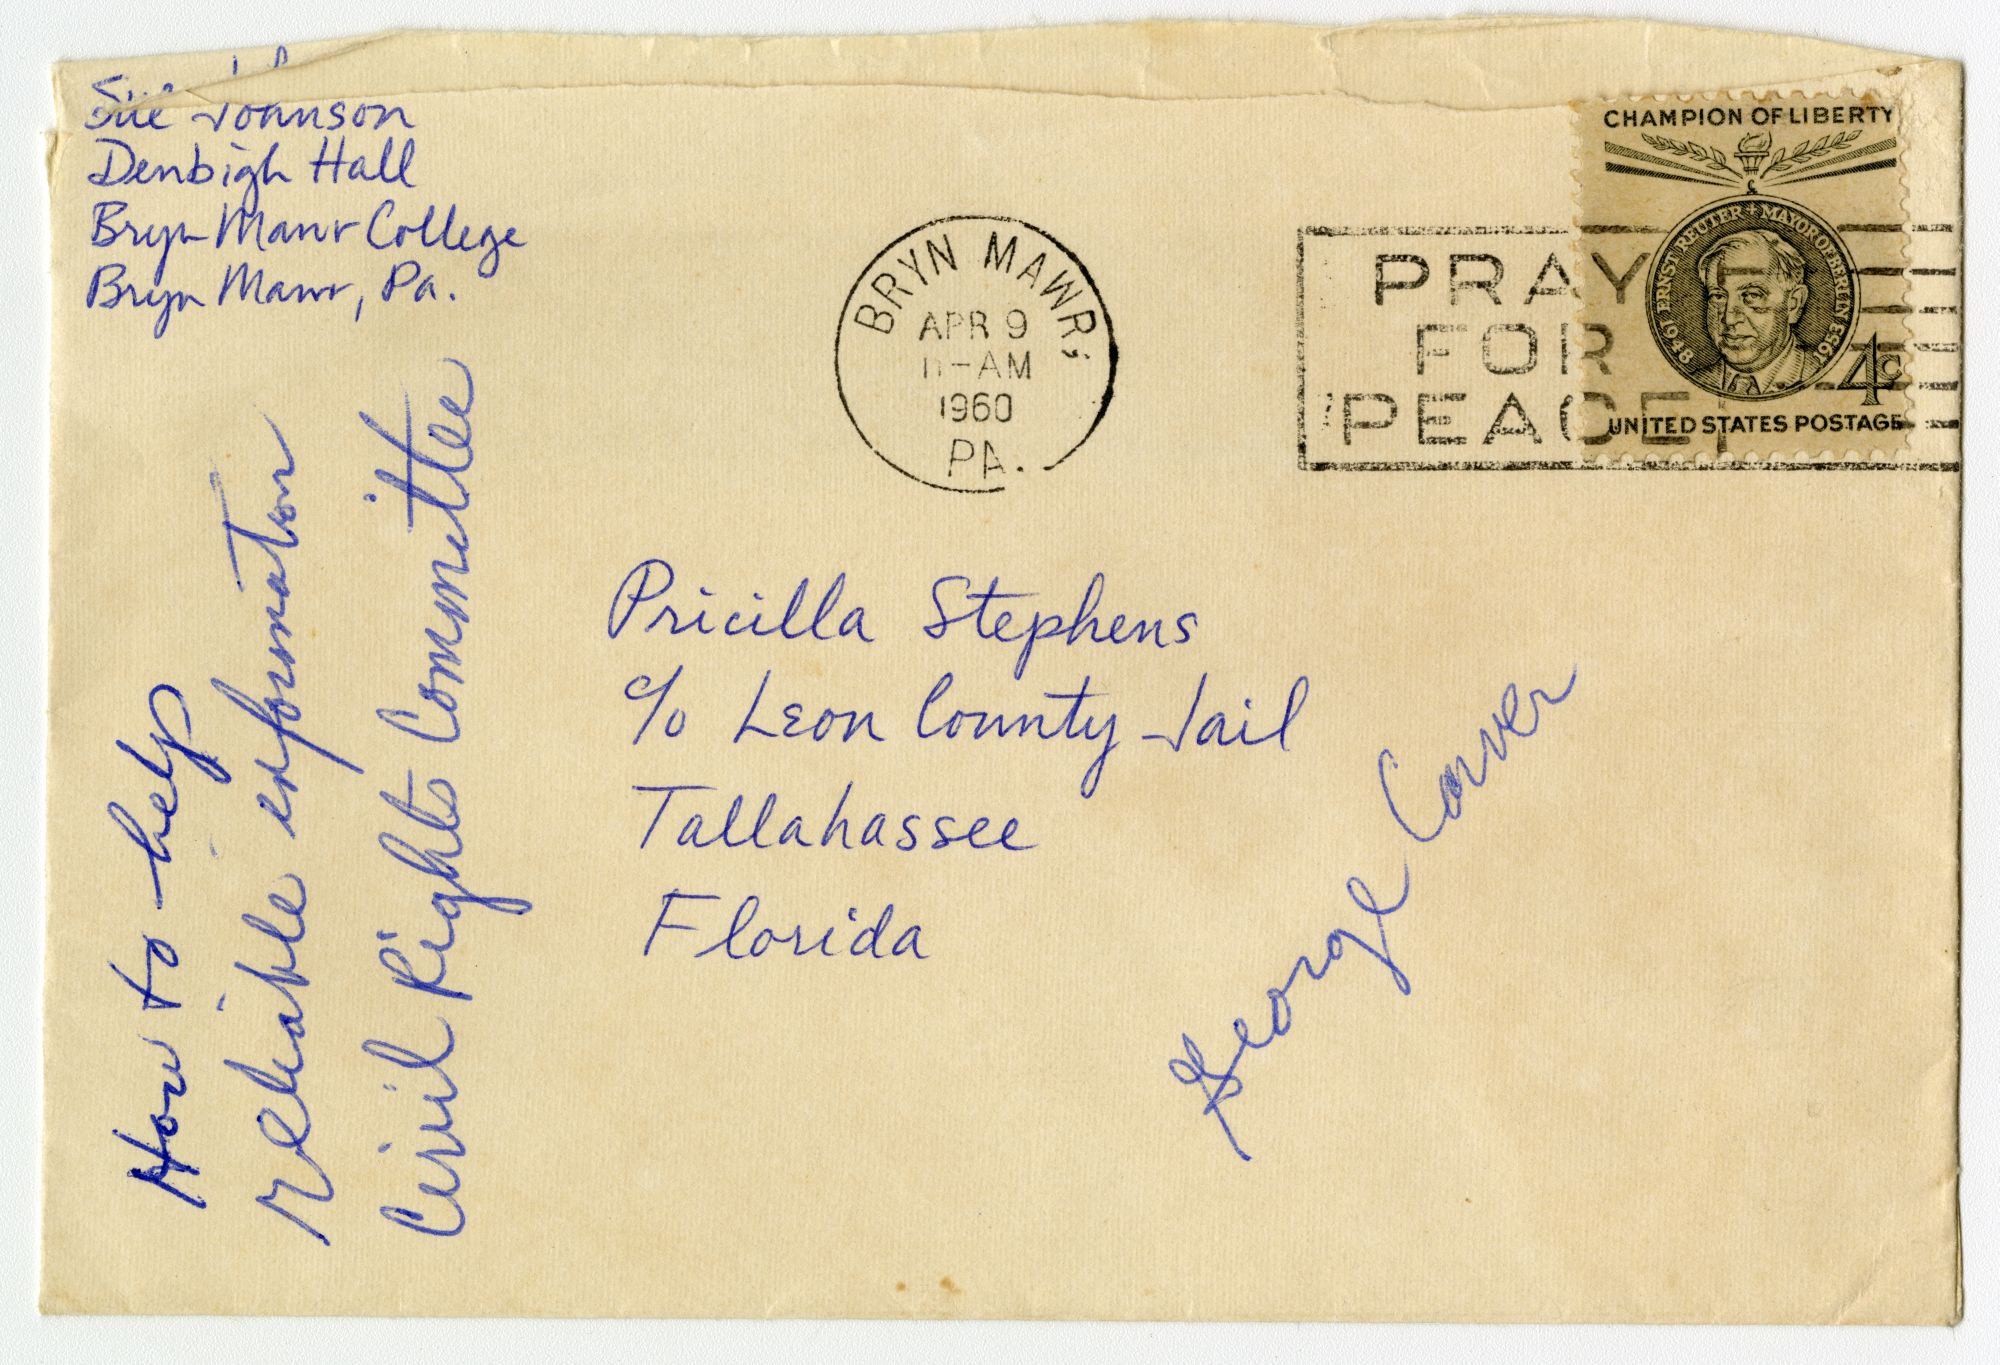 Sue Johnson
Denbigh Hall
Bryn Mawr College
Bryn Mawr, Pa.
BRYN MAWR,
APR 9
11-AM
1960
PA.
PRAY
FOR
PEACE
CHAMPION OF LIBERTY
ERNST REUTER • MAYOR OF BERLIN
1948
1953
4c
UNITED STATES POSTAGE
Pricilla Stephens
c/o Leon County Jail
Tallahassee
Florida
How to help
reliable information
Civil Rights Committee
George Carver